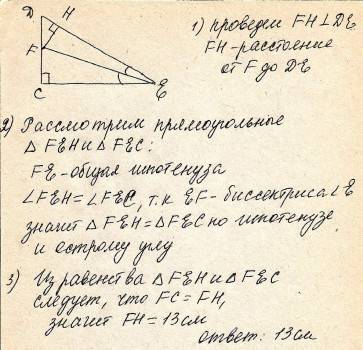 D H
F
C E
1) проведем FH⊥DE
FH-расстояние
от F до DE
2) Рассмотрим прямоугольные
△FEH и △FEC:
FE-общая гипотенуза
∠FEH=∠FEC, т.к EF-биссектриса∠E
значит △FEH=△FEC по гипотенузе
и острому углу
3) Из равенства △FEH и △FEC
следует, что FC=FH,
значит FH=13см
ответ: 13см